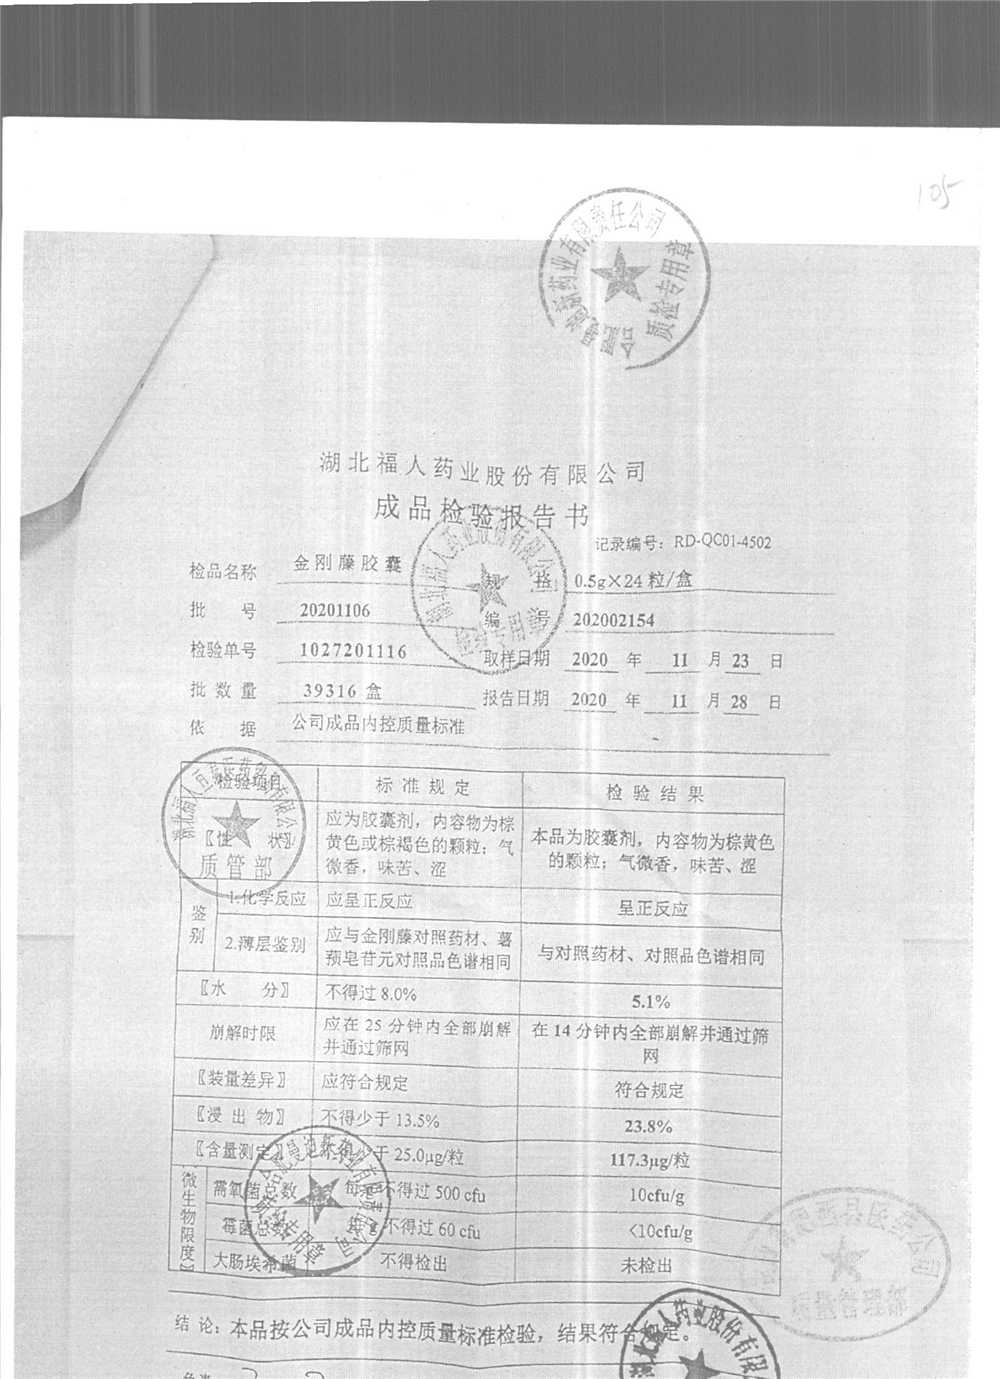 105
有限责任公司
质检专用章
湖北福人药业股份有限公司
成品检验报告书
记录编号：RD-QC01-4502
检品名称 金刚藤胶囊 规 格 0.5g×24粒/盒
批 号 20201106 编 号 202002154
检验单号 1027201116 取样日期 2020 年 11 月 23 日
批数量 39316 盒 报告日期 2020 年 11 月 28 日
依 据 公司成品内控质量标准
检验项目 标准规定 检验结果
〖性 状〗 应为胶囊剂，内容物为棕黄色或棕褐色的颗粒；气微香，味苦、涩 本品为胶囊剂，内容物为棕黄色的颗粒；气微香，味苦、涩
质管部
鉴别 1.化学反应 应呈正反应 呈正反应
2.薄层鉴别 应与金刚藤对照药材、薯蓣皂苷元对照品色谱相同 与对照药材、对照品色谱相同
〖水 分〗 不得过 8.0% 5.1%
崩解时限 应在 25 分钟内全部崩解并通过筛网 在 14 分钟内全部崩解并通过筛网
〖装量差异〗 应符合规定 符合规定
〖浸出物〗 不得少于 13.5% 23.8%
〖含量测定〗 不得少于 25.0μg/粒 117.3μg/粒
微生物限度〗 需氧菌总数 每 g 不得过 500 cfu 10cfu/g
霉菌总数 每 g 不得过 60 cfu <10cfu/g
大肠埃希菌 不得检出 未检出
结 论：本品按公司成品内控质量标准检验，结果符合规定。